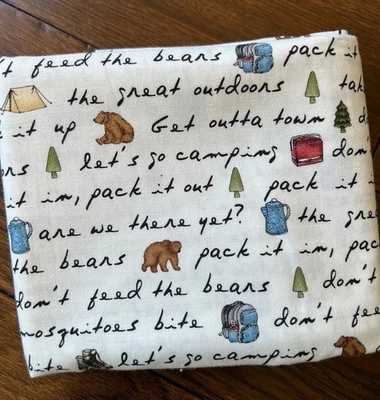 't feed the bears pack it
the great outdoors tak
k it up Get outta town d
ars let's go camping don
it in, pack it out pack it i
are we there yet? the gre
the bears pack it in, pac
don't feed the bears don't
mosquitoes bite don't fee
bite let's go camping